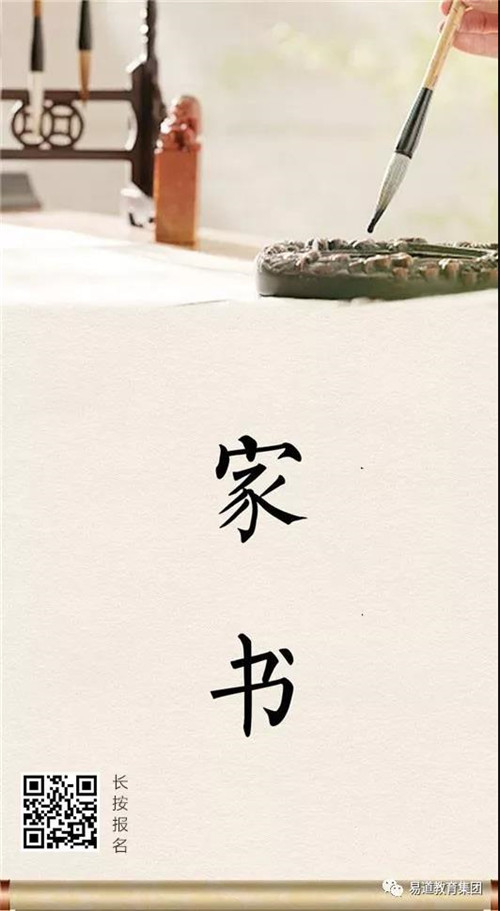 家书
长按报名
易道教育集团